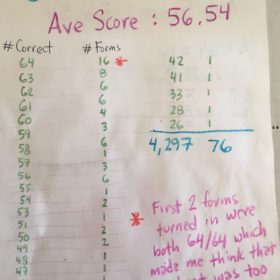 Ave Score : 56.54
# Correct # Forms
64 16 *
63 8
62 6
61 6
60 4
59 3
58 6
57 1
56 3
55 6
54 1
53 2
51 1
50 2
49 2
48 1
47 1
42 1
41 1
33 1
28 1
26 1
4,297 76
* First 2 forms
turned in were
both 64/64 which
made me think that
was too